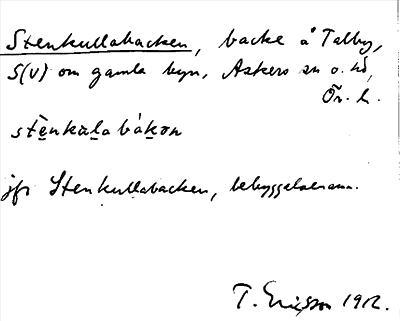 Stenkullabacken, backe å Talby,
S(V) om gamla byn, Askers sn o. hd,
Ör. l.
stènkalabákon
jfr Stenkullabacken, bebyggelsenamn.
T. Ericsson 1912.